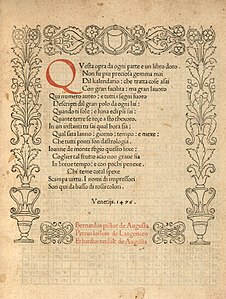 Questa opra da ogni parte e un libro doro.
Non fu piu preciosa gemma mai
Dil kalendario: che tratta cose asai
Con gran facilita: ma gran lavoro
Qui numero aureo: e tutti i segni fuoro
Descripti dil gran polo da ogni lai:
Quando il sole: e luna eclipsi fai:
Quante terre se rege a sto thesoro.
In un instanti tu sai qual hora sia:
Qual sara lanno: giorno: tempo: e mexe:
Che tutti ponti son dastrologia.
Ioanne de monte regio questo fexe:
Coglier tal frutto acio non grave sia
In breve tempo: e con pochi penexe.
Chi teme cotal spexe
Scampa virtu. I nomi di impressori
Son qui da basso di rossi colori.
Venetijs. 1476.
Bernardus pictor de Augusta
Petrus loslein de Langencen
Erhardus ratdolt de Augusta